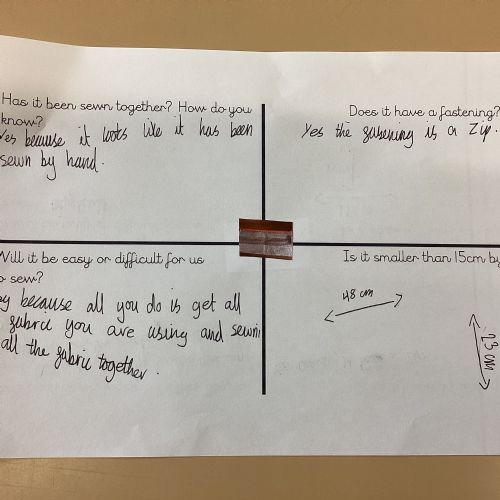 Has it been sewn together? How do you
know?
Yes because it looks like it has been
sewn by hand.
Does it have a fastening?
Yes the fastening is a Zip.
Will it be easy or difficult for us
to sew?
because all you do is get all
fabric you are using and sewin
all the fabric together.
Is it smaller than 15cm by
48 cm
23 cm